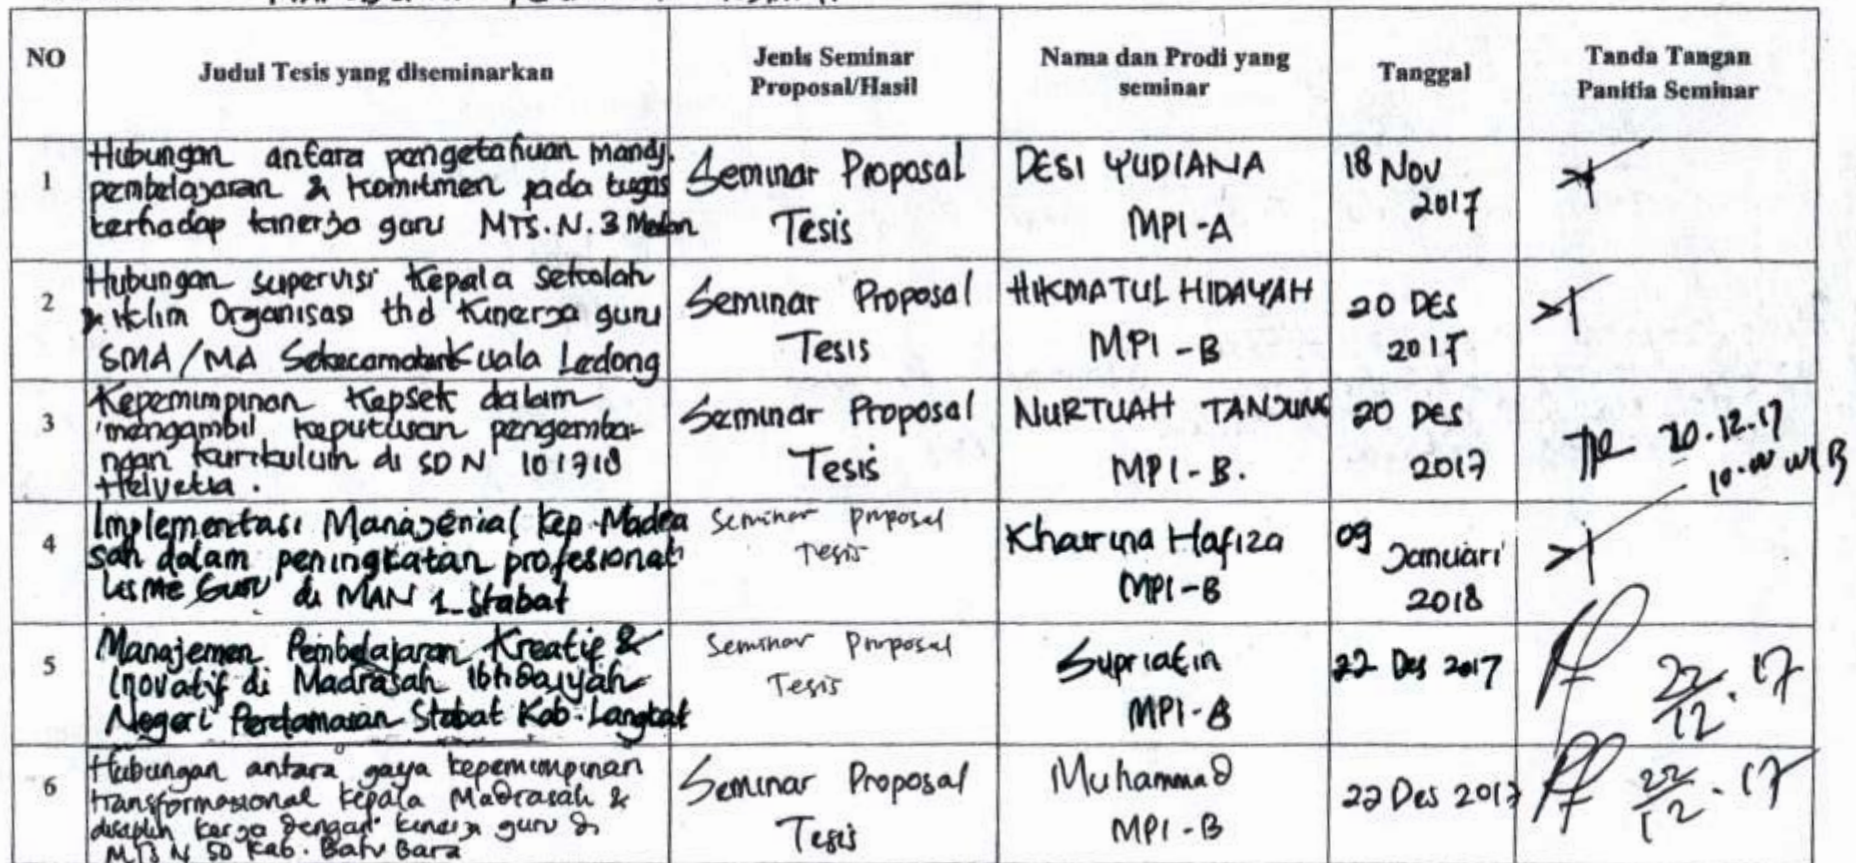 NO
Judul Tesis yang diseminarkan
Jenis Seminar
Proposal/Hasil
Nama dan Prodi yang
seminar
Tanggal
Tanda Tangan
Panitia Seminar
1
Hubungan antara pengetahuan manaj.
pembelajaran & komitmen pada tugas
terhadap kinerja guru MTS.N.3 Medan
Seminar Proposal
Tesis
DESI YUDIANA
MPI-A
18 Nov
2017
2
Hubungan supervisi Kepala sekolah
& iklim Organisasi thd Kinerja guru
SMA/MA Sekecamatan Kuala Ledong
Seminar Proposal
Tesis
HIKMATUL HIDAYAH
MPI-B
20 DES
2017
3
Kepemimpinan Kepsek dalam
mengambil keputusan pengemba-
ngan kurikulum di SDN 101718
Helvetia.
Seminar Proposal
Tesis
NURTUAH TANJUNG
MPI-B.
20 DES
2017
20.12.17
10.00 WIB
4
Implementasi Manajenial Kep.Madra
sah dalam peningkatan profesional
lisme Guru di MAN 1 Stabat
Seminar proposal
Tesis
Khairina Hafiza
MPI-B
09 Januari
2018
5
Manajemen Pembelajaran Kreatif &
Inovatif di Madrasah Ibtidaiyah
Negeri Perdamaian Stabat Kab.Langkat
Seminar Proposal
Tesis
Supriatin
MPI-B
22 Des 2017
22/12.17
6
Hubungan antara gaya kepemimpinan
transformasional Kepala Madrasah &
disiplin kerja dengan kinerja guru di
MTs N 50 Kab. Batu Bara
Seminar Proposal
Tesis
Muhammad
MPI-B
22 Des 2017
22/12.17